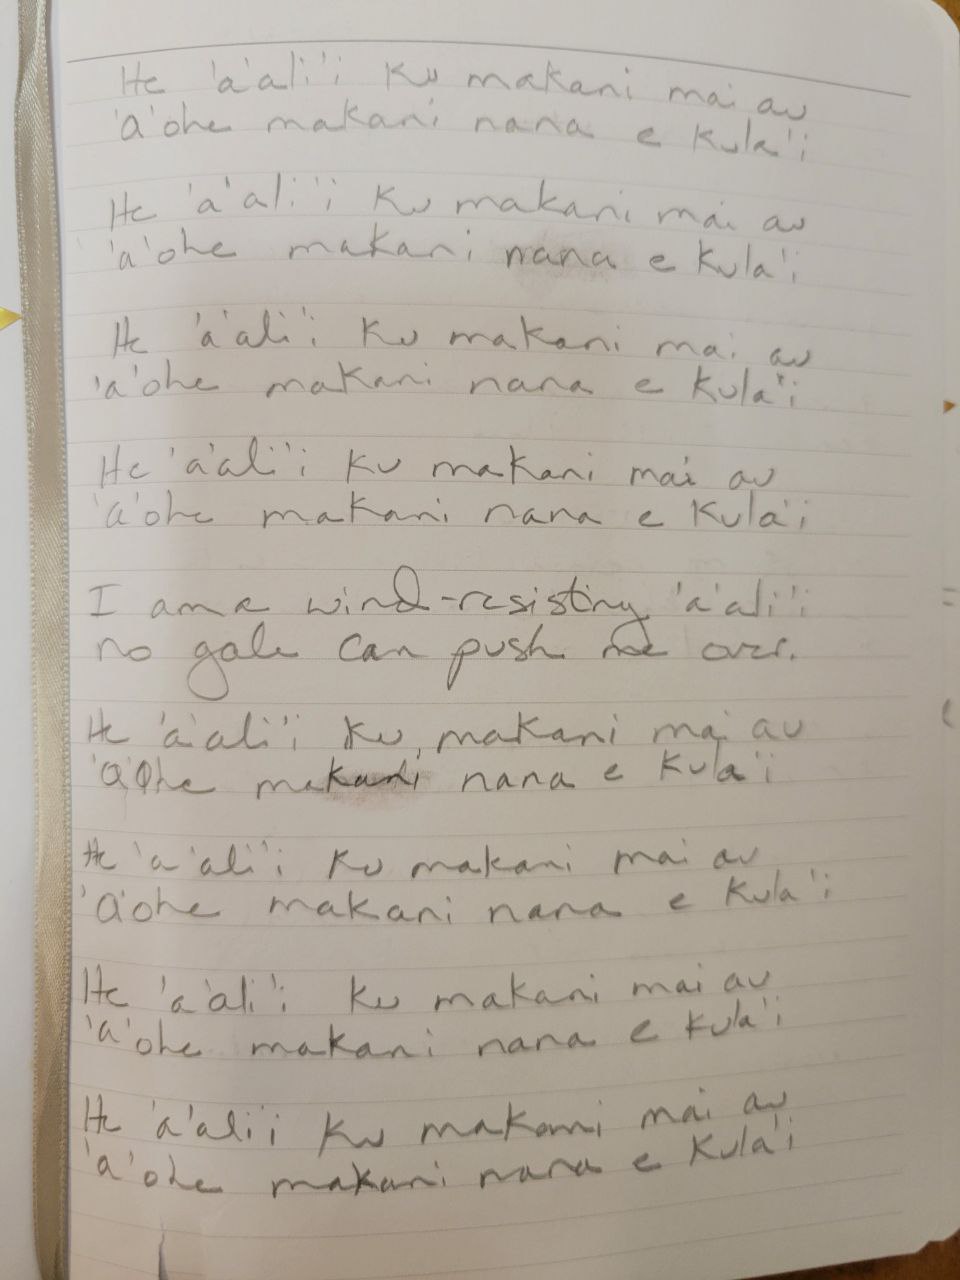 He 'a'ali'i Ku makani mai au
'a'ohe makani nana e Kula'i
He 'a'ali'i Ku makani mai au
'a'ohe makani nana e Kula'i
He 'a'ali'i Ku makani mai au
'a'ohe makani nana e Kula'i
He 'a'ali'i Ku makani mai au
'a'ohe makani nana e Kula'i
I am a wind-resisting 'a'ali'i
no gale can push me over.
He 'a'ali'i Ku makani mai au
'a'ohe makani nana e Kula'i
He 'a'ali'i Ku makani mai au
'a'ohe makani nana e Kula'i
He 'a'ali'i Ku makani mai au
'a'ohe makani nana e Kula'i
He 'a'ali'i Ku makani mai au
'a'ohe makani nana e Kula'i